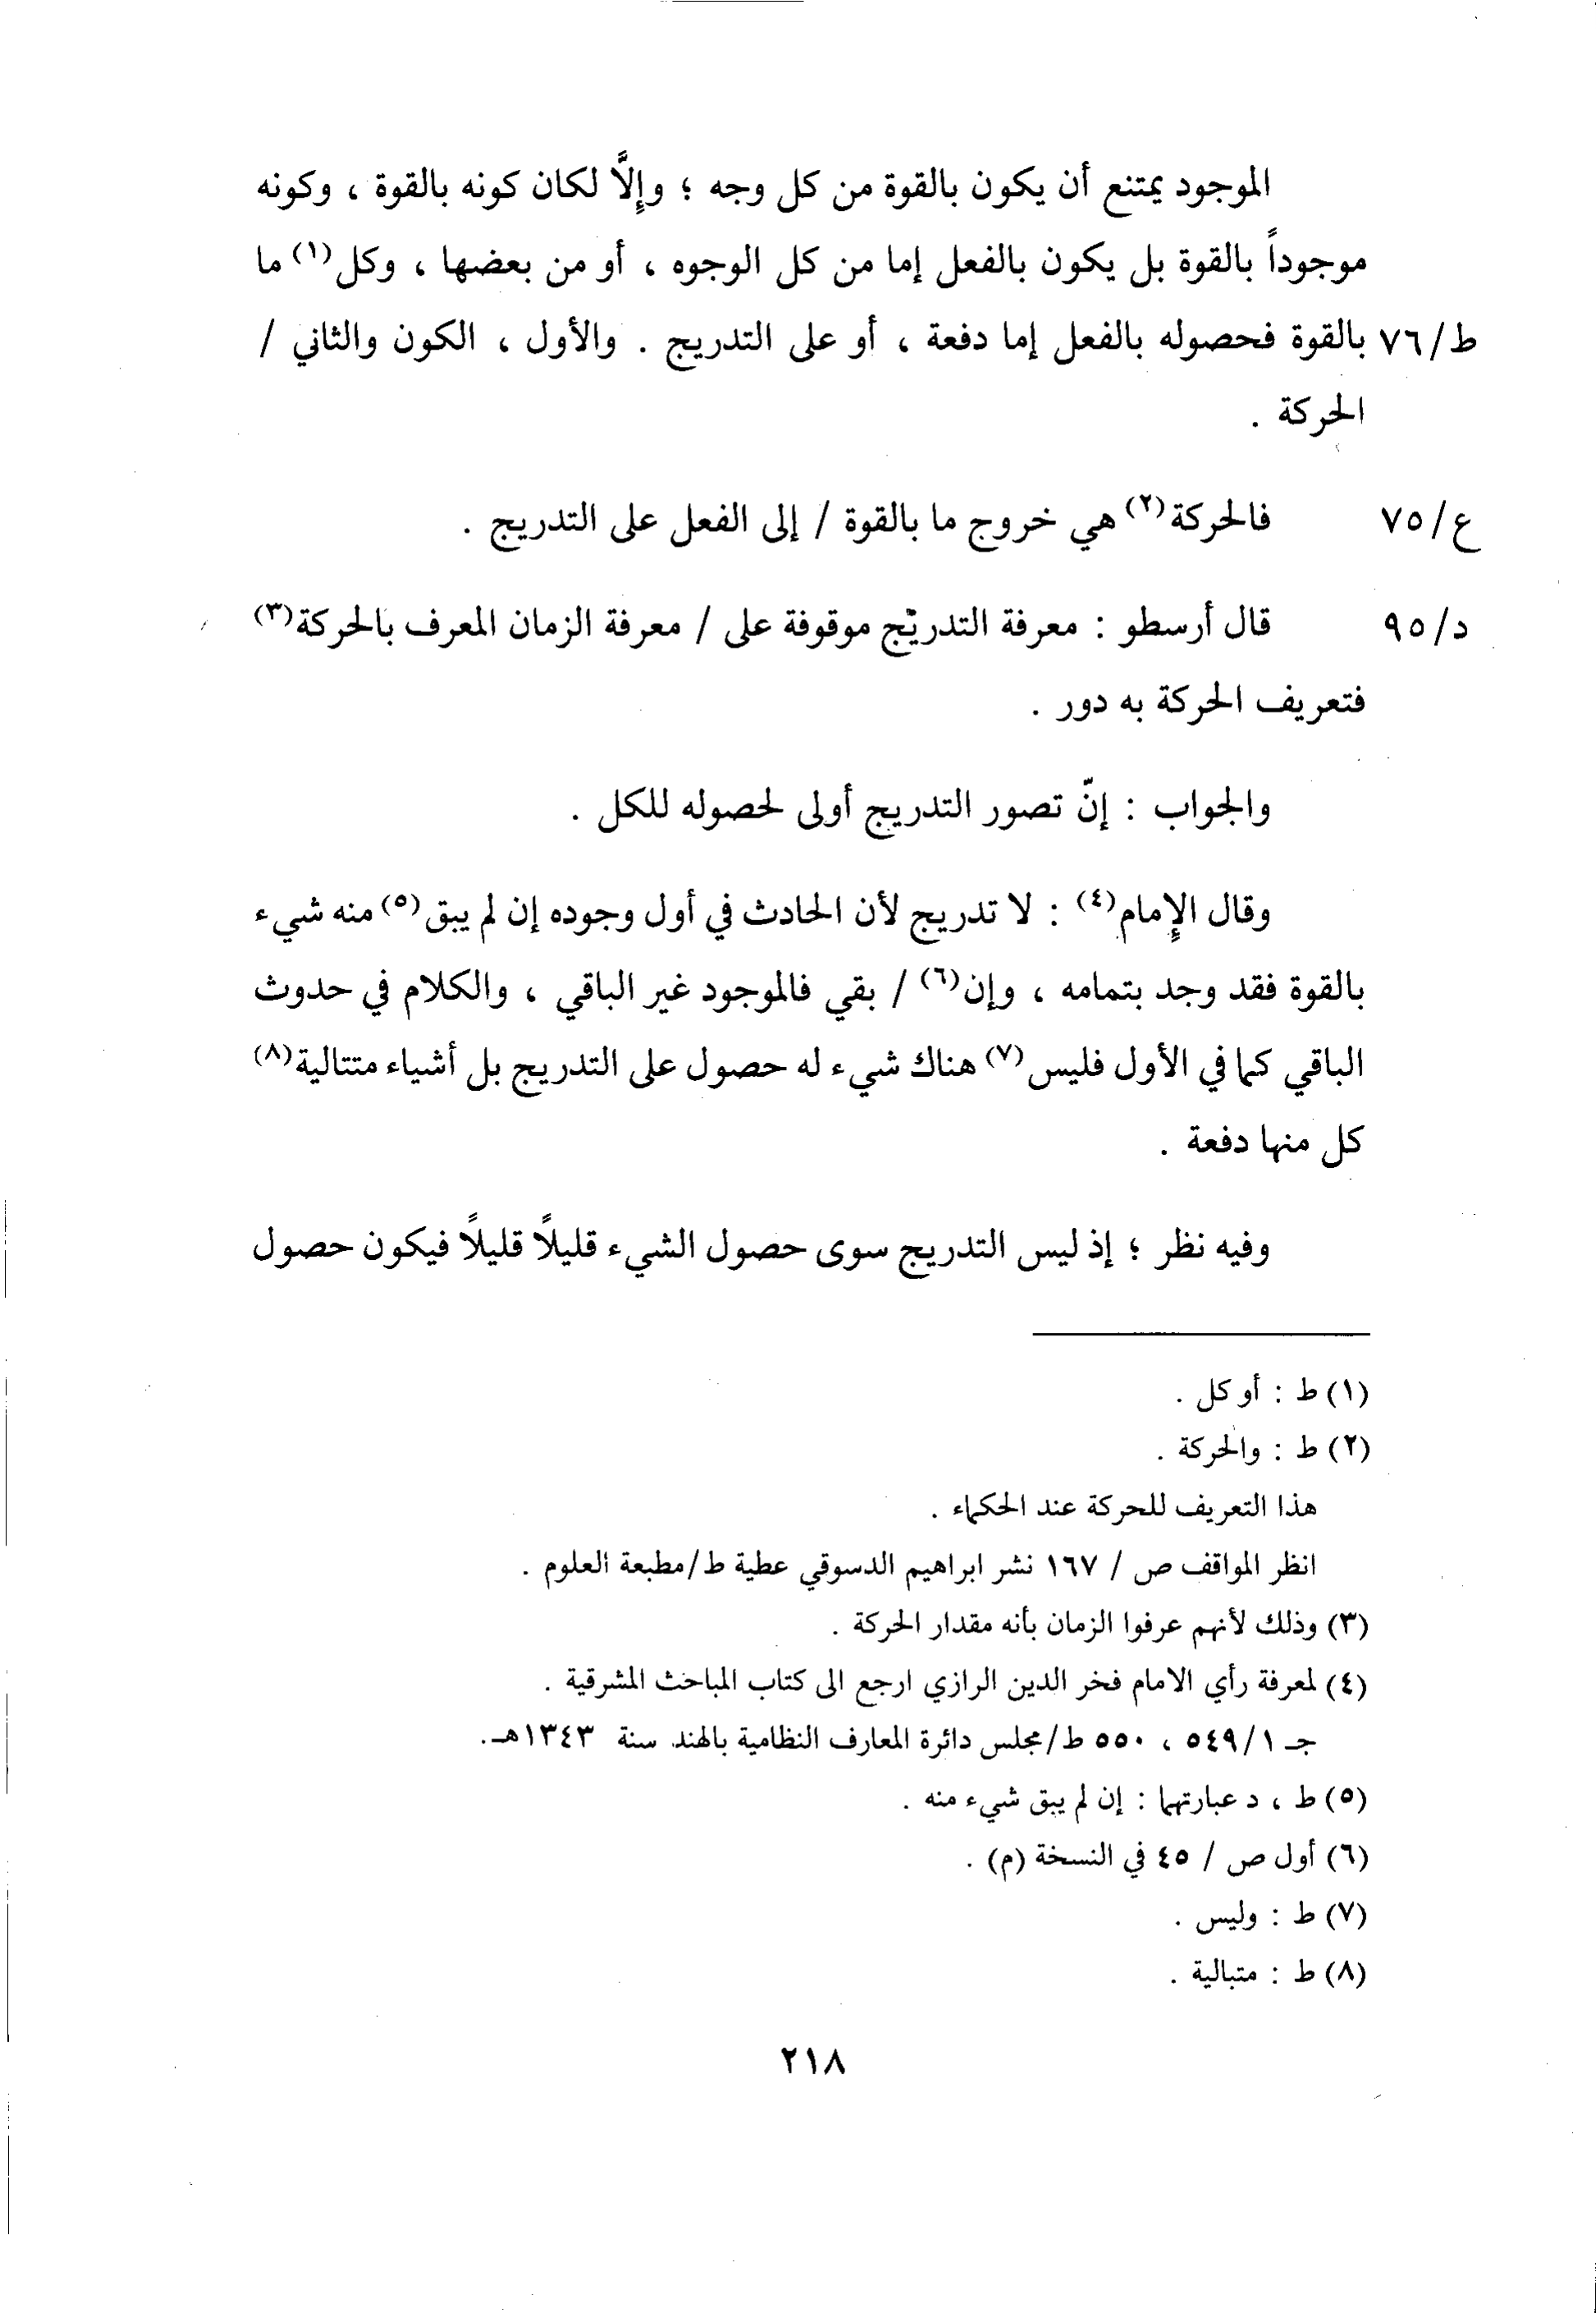 الموجود يمتنع أن يكون بالقوة من كل وجه ؛ وإلاَّ لكان كونه بالقوة ، وكونه
موجوداً بالقوة بل يكون بالفعل إما من كل الوجوه ، أو من بعضها ، وكل(١) ما
ط/٧٦ بالقوة فحصوله بالفعل إما دفعة ، أو على التدريج . والأول ، الكون والثاني /
الحركة .
ع/٧٥ فالحركة(٢) هي خروج ما بالقوة / إلى الفعل على التدريج .
د/٩٥ قال أرسطو : معرفة التدريج موقوفة على / معرفة الزمان المعرف بالحركة(٣)
فتعريف الحركة به دور .
والجواب : إنّ تصور التدريج أولى لحصوله للكل .
وقال الإمام(٤) : لا تدريج لأن الحادث في أول وجوده إن لم يبق(٥) منه شيء
بالقوة فقد وجد بتمامه ، وإن(٦) / بقي فالموجود غير الباقي ، والكلام في حدوث
الباقي كما في الأول فليس(٧) هناك شيء له حصول على التدريج بل أشياء متتالية(٨)
كل منها دفعة .
وفيه نظر ؛ إذ ليس التدريج سوى حصول الشيء قليلاً قليلاً فيكون حصول
(١) ط : أو كل .
(٢) ط : والحركة .
هذا التعريف للحركة عند الحكماء .
انظر المواقف ص / ١٦٧ نشر ابراهيم الدسوقي عطية ط/مطبعة العلوم .
(٣) وذلك لأنهم عرفوا الزمان بأنه مقدار الحركة .
(٤) لمعرفة رأي الامام فخر الدين الرازي ارجع الى كتاب المباحث المشرقية .
جـ ١/٥٤٩ ، ٥٥٠ ط/مجلس دائرة المعارف النظامية بالهند سنة ١٣٤٣هـ.
(٥) ط ، د عبارتهما : إن لم يبق شيء منه .
(٦) أول ص / ٤٥ في النسخة (م) .
(٧) ط : وليس .
(٨) ط : متبالية .
٢١٨